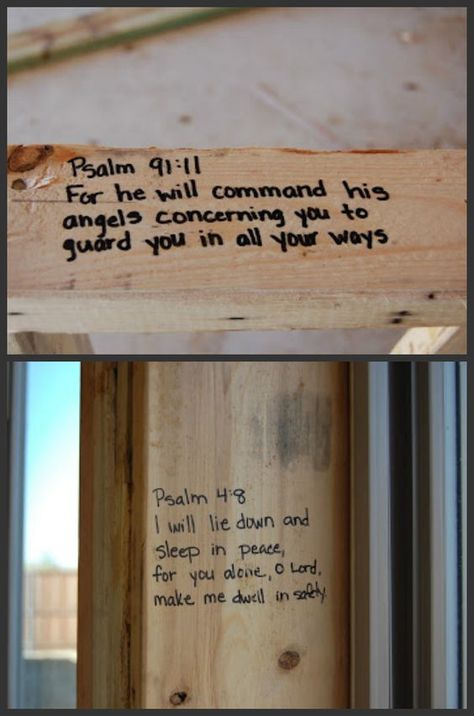 Psalm 91:11
For he will command his
angels concerning you to
guard you in all your ways
Psalm 4:8
I will lie down and
sleep in peace,
for you alone, O Lord,
make me dwell in safety.